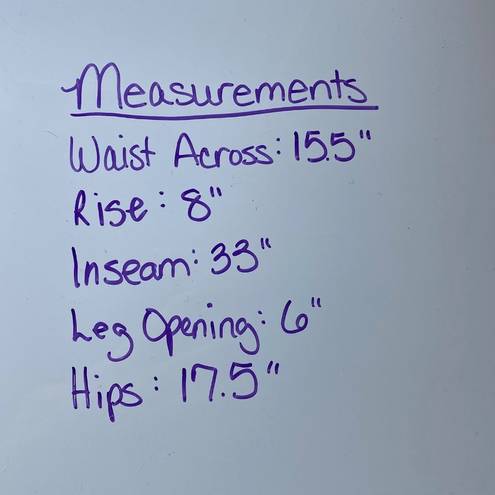 Measurements
Waist Across: 15.5"
Rise: 8"
Inseam: 33"
Leg Opening: 6"
Hips: 17.5"